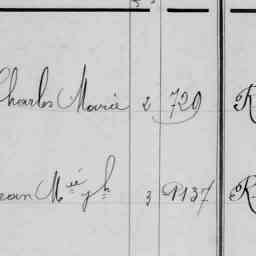 Charles Marie 2 720 R
Jean Mie Jh 3 1137 R